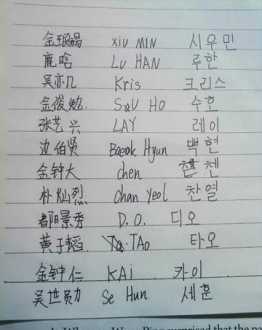 金珉錫 xiu MIN 시우민
鹿晗 Lu HAN 루한
吴亦凡 Kris 크리스
金俊勉 SuU Ho 수호
张艺兴 LAY 레이
边伯贤 Baeok Hyun 백현
金钟大 chen 첸
朴灿烈 chan Yeol 찬열
都暻秀 D.O. 디오
黄子韬 TAo 타오
金钟仁 KAi 카이
吴世勋 Se Hun 세훈